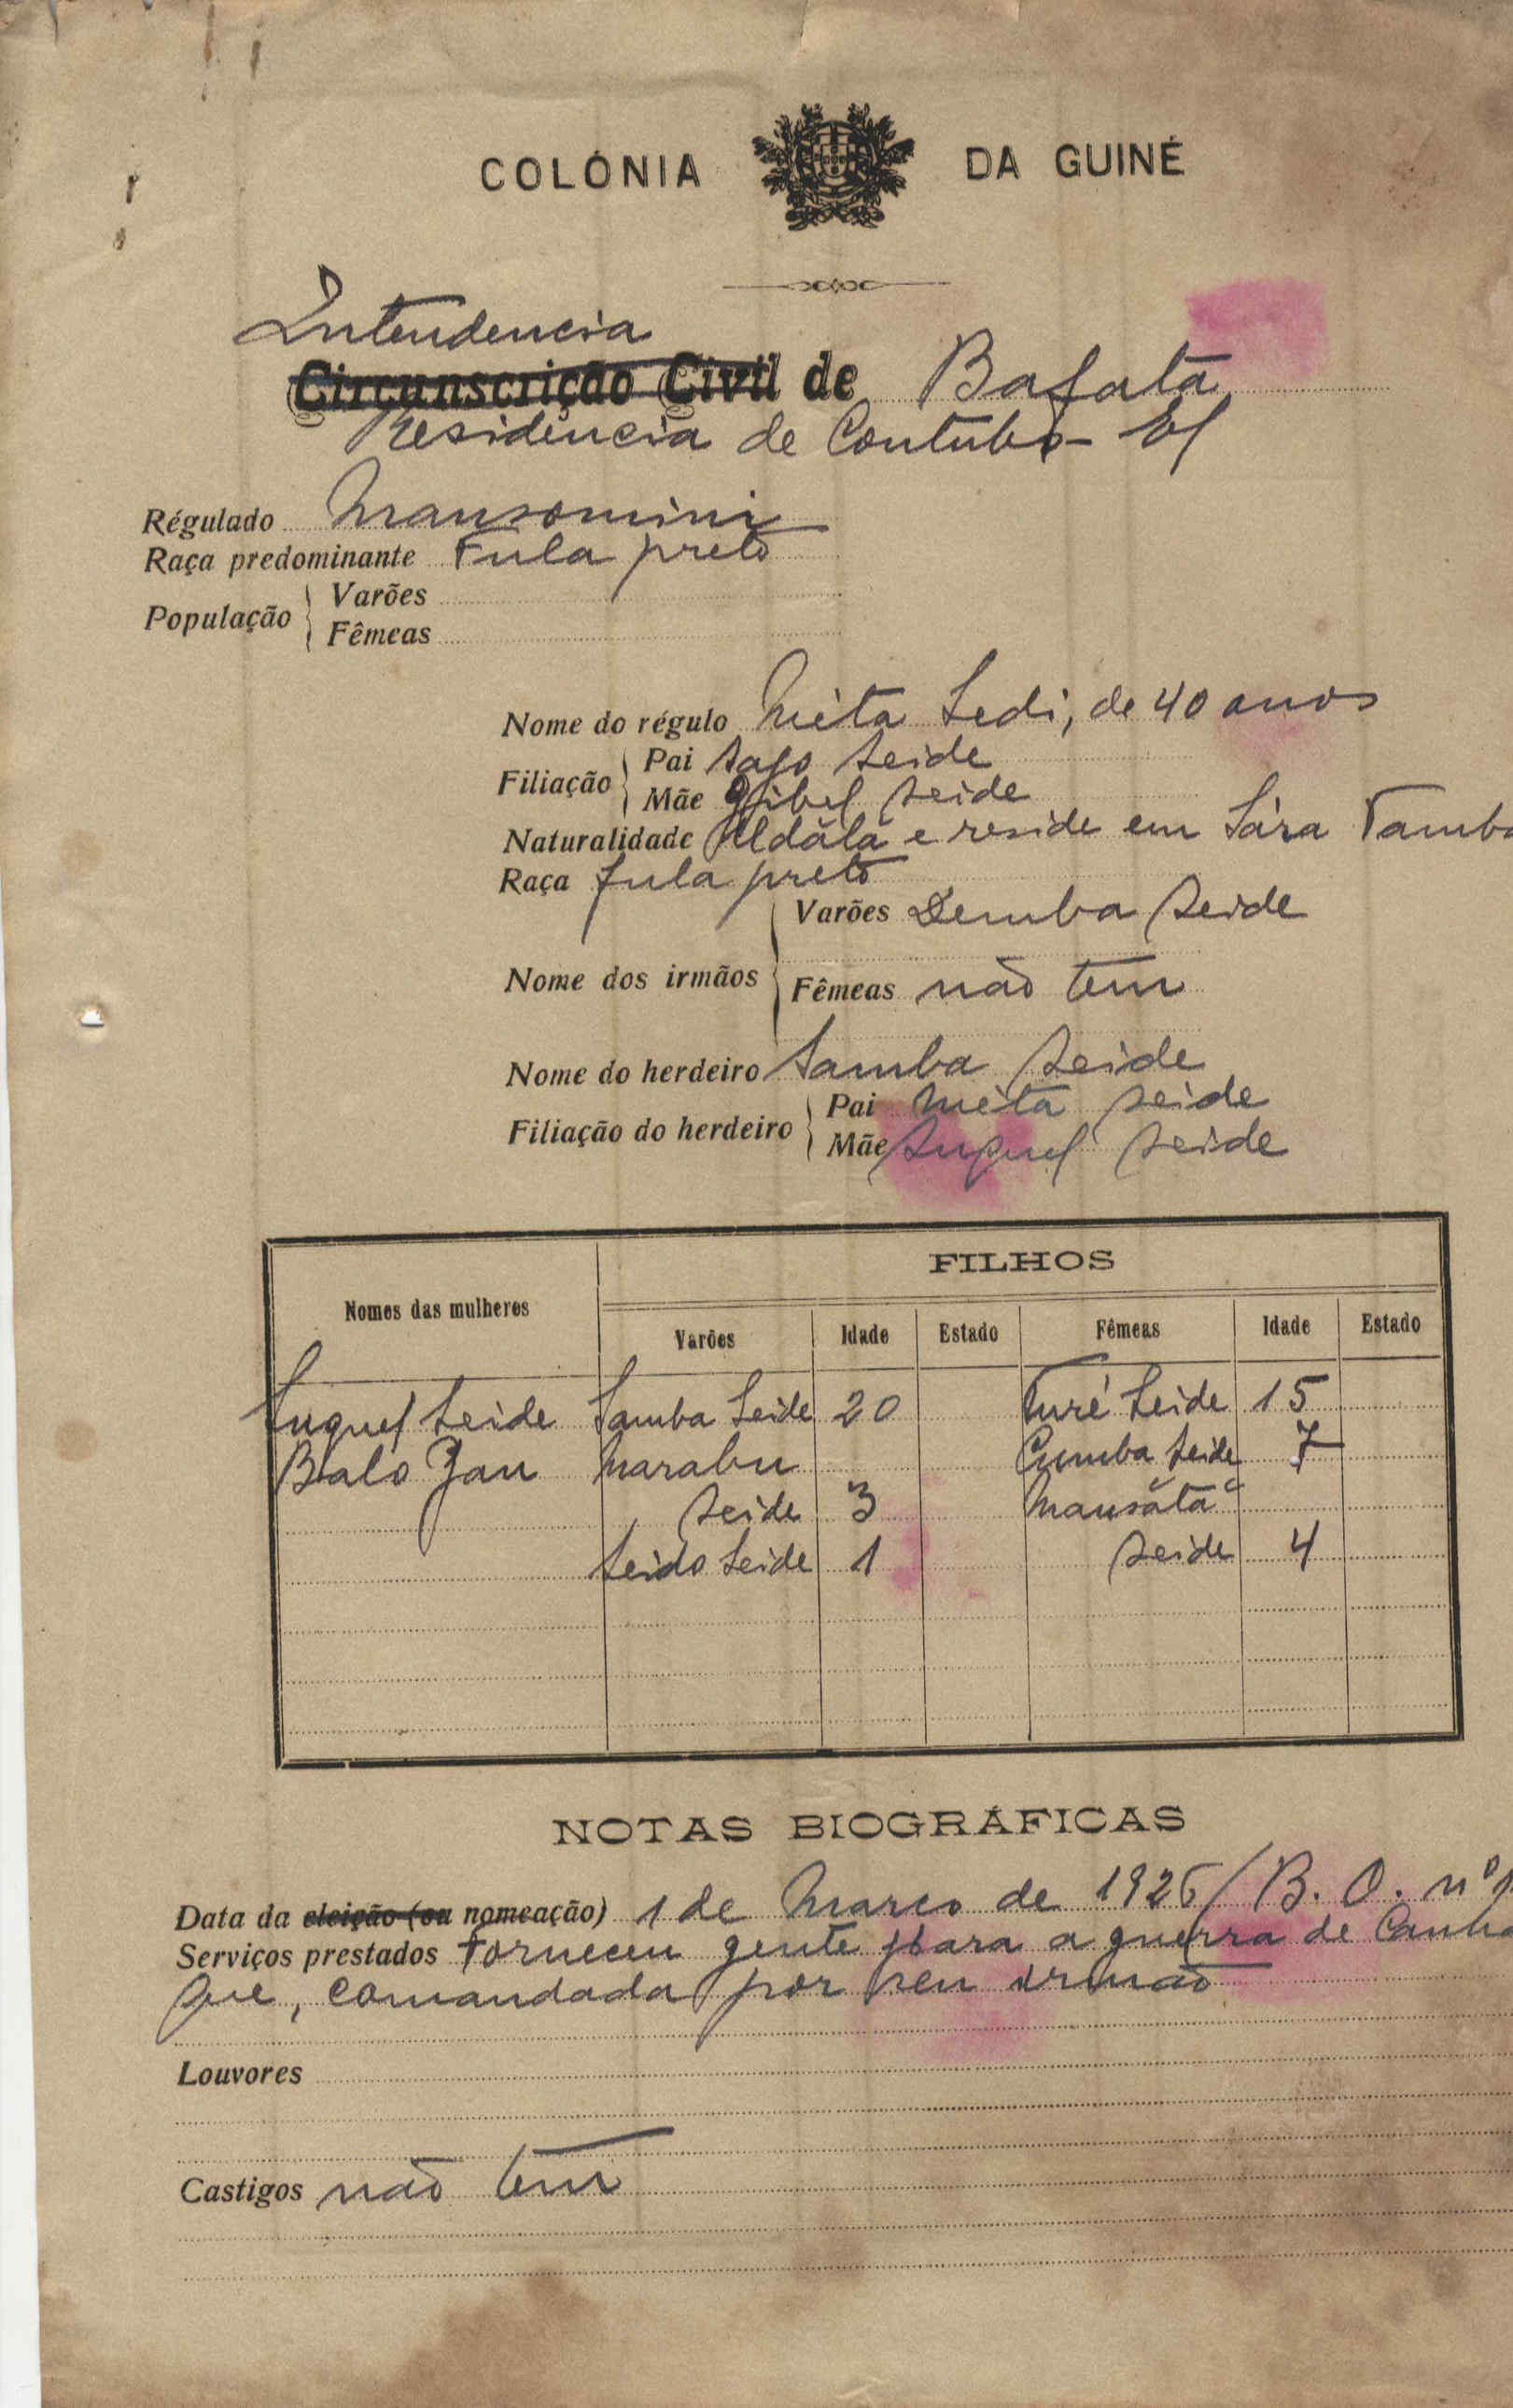 COLÓNIA DA GUINÉ
Intendencia
Circunscrição Civil de Bafatá
Residência de Contubo-El
Régulado Mansomini
Raça predominante Fula preto
População
Varões
Fêmeas
Nome do régulo Mèta Sedi, de 40 anos
Filiação
Pai Seide
Mãe Seide
Naturalidade e reside em Sára
Raça fula preto
Nome dos irmãos
Varões Demba Seide
Fêmeas não tem
Nome do herdeiro Samba Seide
Filiação do herdeiro
Pai Mèta Seide
Mãe Suquel Seide
FILHOS
Nomes das mulheres Varões Idade Estado Fêmeas Idade Estado
Suquel Seide Samba Seide 20 Turé Seide 15
Balo Marabu Cumba Seide 7
Seide 3 Mansata
Seido Seide 1 Seide 4
NOTAS BIOGRÁFICAS
Data da eleição (ou nomeação) 1 de Março de 1926/B. O. nº
Serviços prestados forneceu gente para a guerra de Canha
que, comandada por seu irmão
Louvores
Castigos não tem